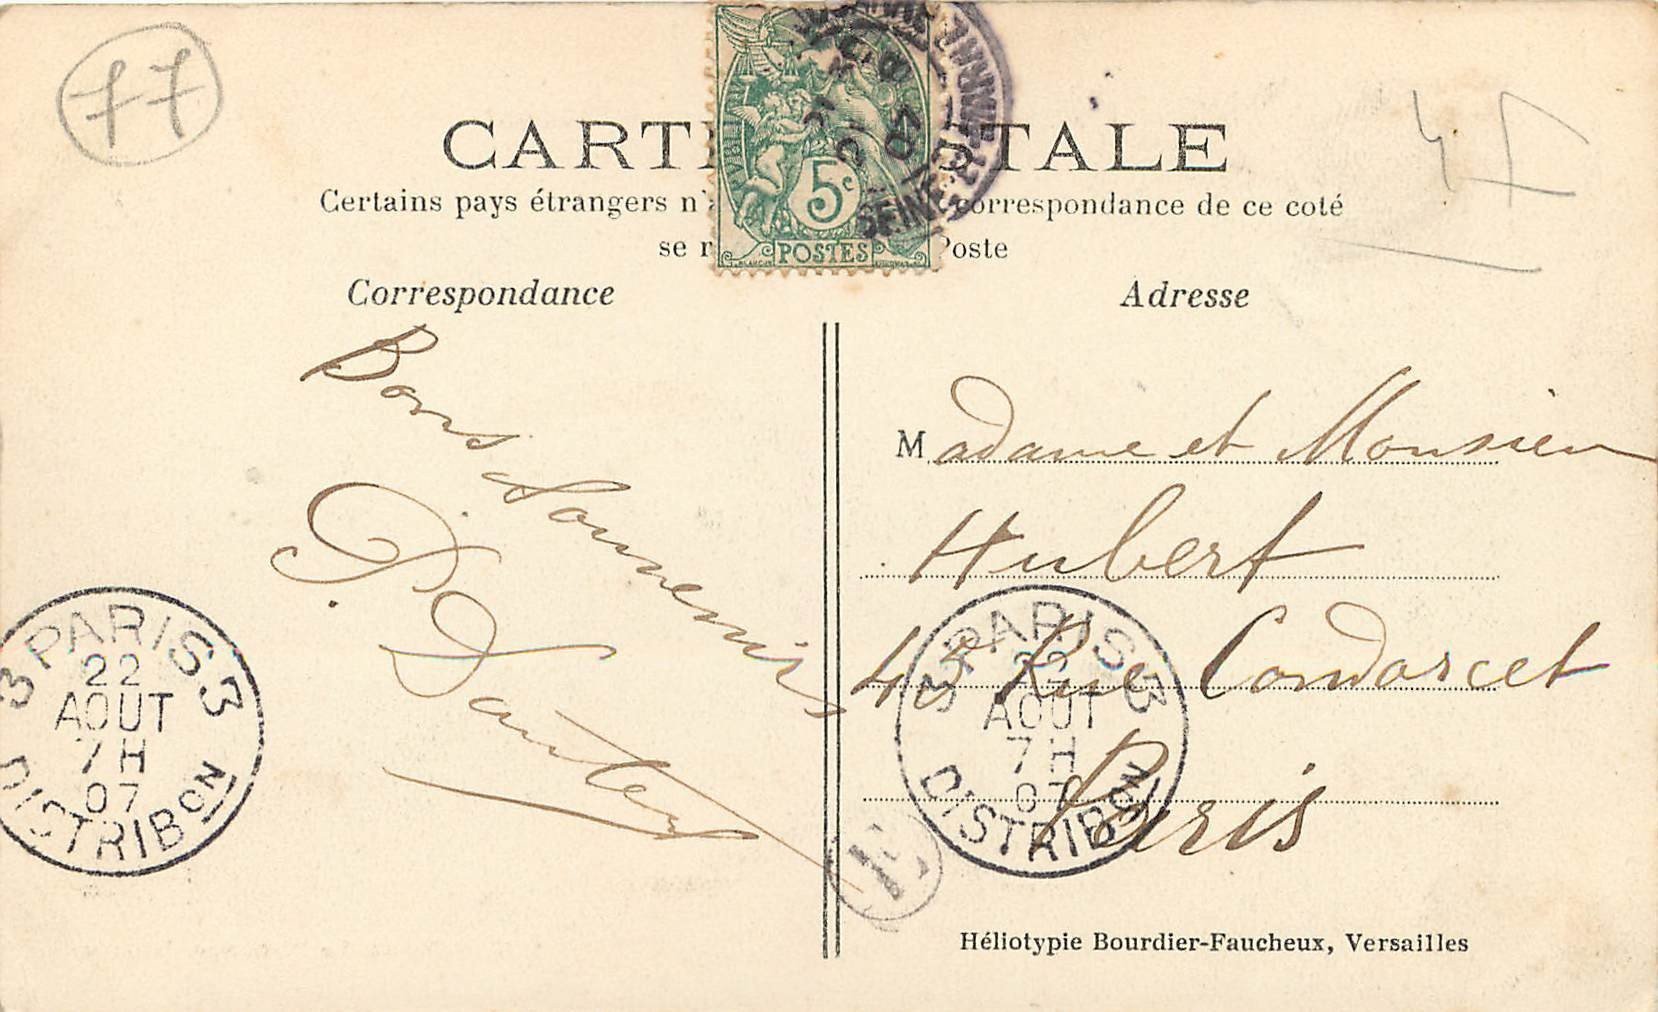 77
CARTE POSTALE
Certains pays étrangers n'a correspondance de ce coté
se r Poste
5c
POSTES
SEINE
Correspondance
Adresse
Bons Souvenirs
P. Dauter
Madame et Monsieur
Hubert
45 Rue Condorcet
Paris
3 PARIS 3
22
AOUT
7H
07
DISTRIBON
3 PARIS 3
22
AOUT
7H
07
DISTRIBON
Héliotypie Bourdier-Faucheux, Versailles